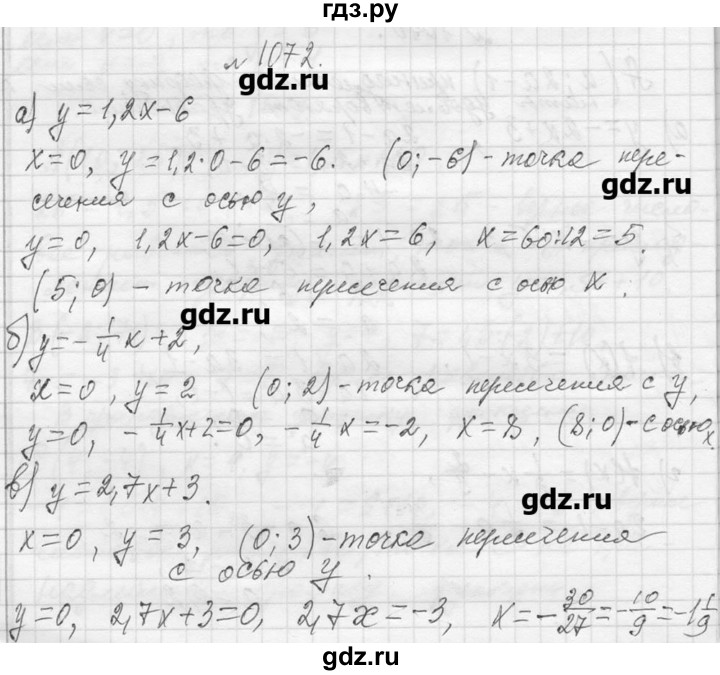 гдз.ру
№ 1072.
gdz.ru
а) y = 1,2x - 6
x = 0, y = 1,2·0 - 6 = -6. (0; -6) - точка пере-
gdz.ru
сечения с осью y,
y = 0, 1,2x - 6 = 0, 1,2x = 6, x = 60:12 = 5.
(5; 0) - точка пересечения с осью x.
gdz.ru
б) y = -1/4 x + 2,
x = 0, y = 2 (0; 2) - точка пересечения с y,
y = 0, -1/4 x + 2 = 0, -1/4 x = -2, x = 8, (8; 0) - с осью x.
в) y = 2,7x + 3.
gdz.ru
x = 0, y = 3, (0; 3) - точка пересечения
с осью y.
y = 0, 2,7x + 3 = 0, 2,7x = -3, x = -30/27 = -10/9 = -1 1/9
gdz.ru